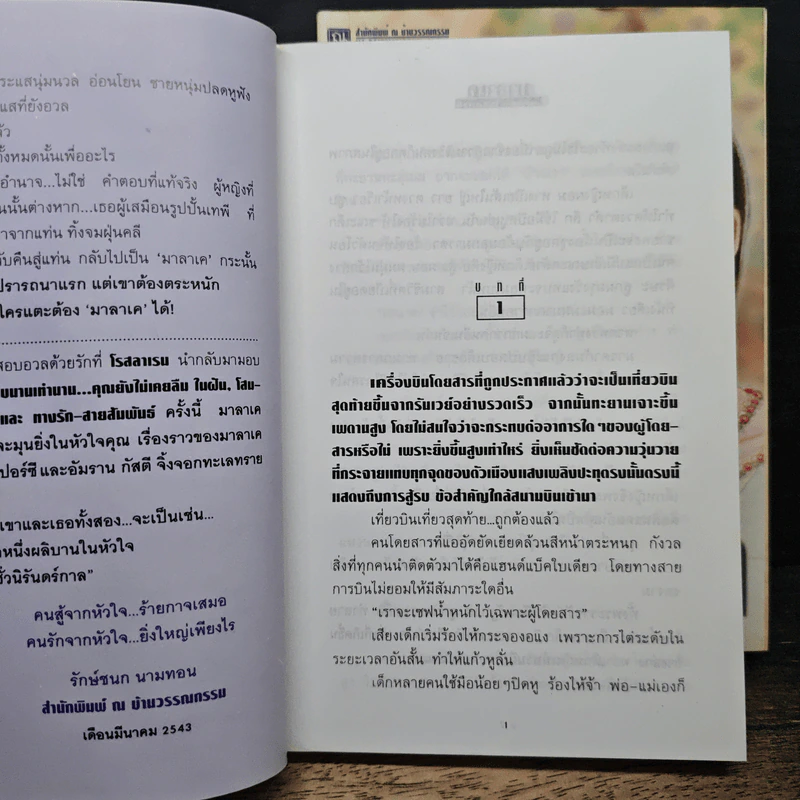 สำนักพิมพ์ ณ บ้านวรรณกรรม
ระแสนุ่มนวล อ่อนโยน ชายหนุ่มปลดหูฟัง
แสที่ยังอวล
ล้ว
ทั้งหมดนั้นเพื่ออะไร
อำนาจ...ไม่ใช่ คำตอบที่แท้จริง ผู้หญิงที่
นนั้นต่างหาก...เธอผู้เสมือนรูปปั้นเทพี ที่
าจากแท่น ทิ้งจมฝุ่นคลี
ับคืนสู่แท่น กลับไปเป็น ‘มาลาเค’ กระนั้น
ปรารถนาแรก แต่เขาต้องตระหนัก
ใครแตะต้อง ‘มาลาเค’ ได้!
สอบอวลด้วยรักที่ โรสลาเรน นำกลับมามอบ
บนานเท่านาน...คุณยังไม่เคยลืม ในฝัน, โสม-
และ ทางรัก-สายสัมพันธ์ ครั้งนี้ มาลาเค
ะมุนยิ่งในหัวใจคุณ เรื่องราวของมาลาเค
ปอร์ซี และอัมราน กัสตี จึ้งจอกทะเลทราย
เขาและเธอทั้งสอง...จะเป็นเช่น...
หนึ่งผลิบานในหัวใจ
ชั่วนิรันดร์กาล”
คนสู้จากหัวใจ...ร้ายกาจเสมอ
คนรักจากหัวใจ...ยิ่งใหญ่เพียงไร
รักษ์ชนก นามทอน
สำนักพิมพ์ ณ บ้านวรรณกรรม
เดือนมีนาคม 2543
บทที่
1
เครื่องบินโดยสารที่ถูกประกาศแล้วว่าจะเป็นเที่ยวบิน
สุดท้ายขึ้นจากรันเวย์อย่างรวดเร็ว จากนั้นทะยานเจาะขึ้น
เพดานสูง โดยไม่สนใจว่าจะกระทบต่ออาการใดๆของผู้โดย-
สารหรือไม่ เพราะยิ่งขึ้นสูงเท่าไหร่ ยิ่งเห็นชัดต่อความวุ่นวาย
ที่กระจายแทบทุกจุดของตัวเมืองแสงเพลิงปะทุตรงนั้นตรงนี้
แสดงถึงการสู้รบ ข้อสำคัญใกล้สนามบินเข้ามา
เที่ยวบินเที่ยวสุดท้าย...ถูกต้องแล้ว
คนโดยสารที่แออัดยัดเยียดล้วนสีหน้าตระหนก กังวล
สิ่งที่ทุกคนนำติดตัวมาได้คือแฮนด์แบ็คใบเดียว โดยทางสาย
การบินไม่ยอมให้มีสัมภาระใดอื่น
“เราจะเซฟน้ำหนักไว้เฉพาะผู้โดยสาร”
เสียงเด็กเริ่มร้องไห้กระจองอแง เพราะการไต่ระดับใน
ระยะเวลาอันสั้น ทำให้แก้วหูลั่น
เด็กหลายคนใช้มือน้อยๆปิดหู ร้องไห้จ้า พ่อ-แม่เองก็
1